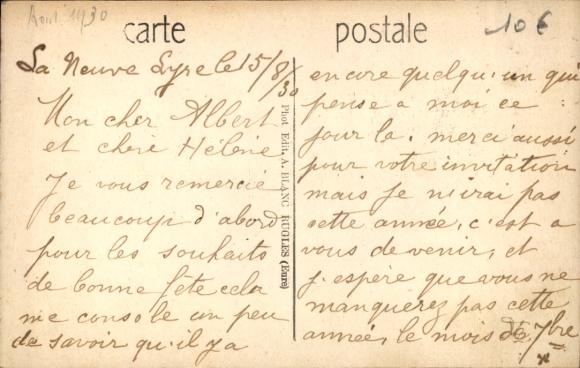 Aout 1930
10€
carte postale
La Neuve Lyre le 15/8/30
Mon cher Albert
et chère Hélène
Je vous remercie
beaucoup d'abord
pour les souhaits
de bonne fête cela
me console un peu
de savoir qu'il y a
Phot Edit. A. BLANC RUGLES (Eure)
encore quelqu'un qui
pense a moi ce
jour la. merci aussi
pour votre invitation
mais je n'irai pas
cette année, c'est a
vous de venir, et
j'espère que vous ne
manquerez pas cette
année, le mois de 7bre